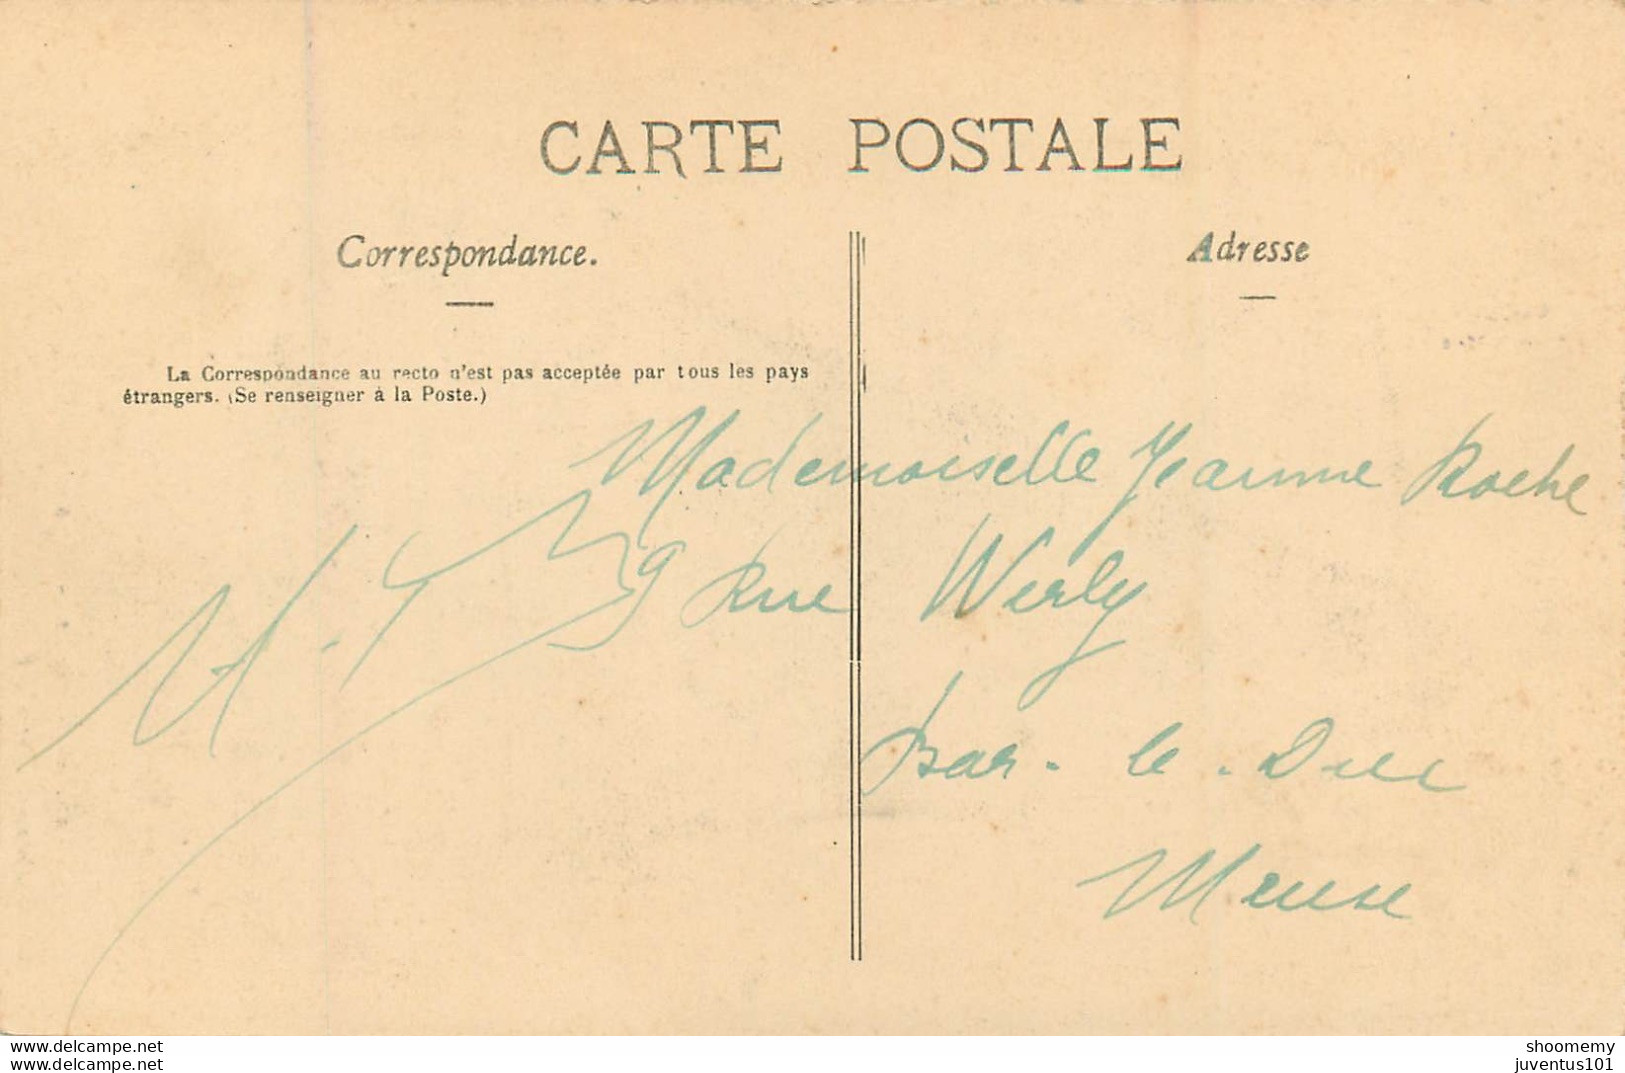 CARTE POSTALE
Correspondance.
Adresse
La Correspondance au recto n'est pas acceptée par tous les pays
étrangers. (Se renseigner à la Poste.)
Mademoiselle Jeanne Roche
9 Rue Werly
Bar-le-Duc
Meuse
www.delcampe.net
shoomemy
juventus101